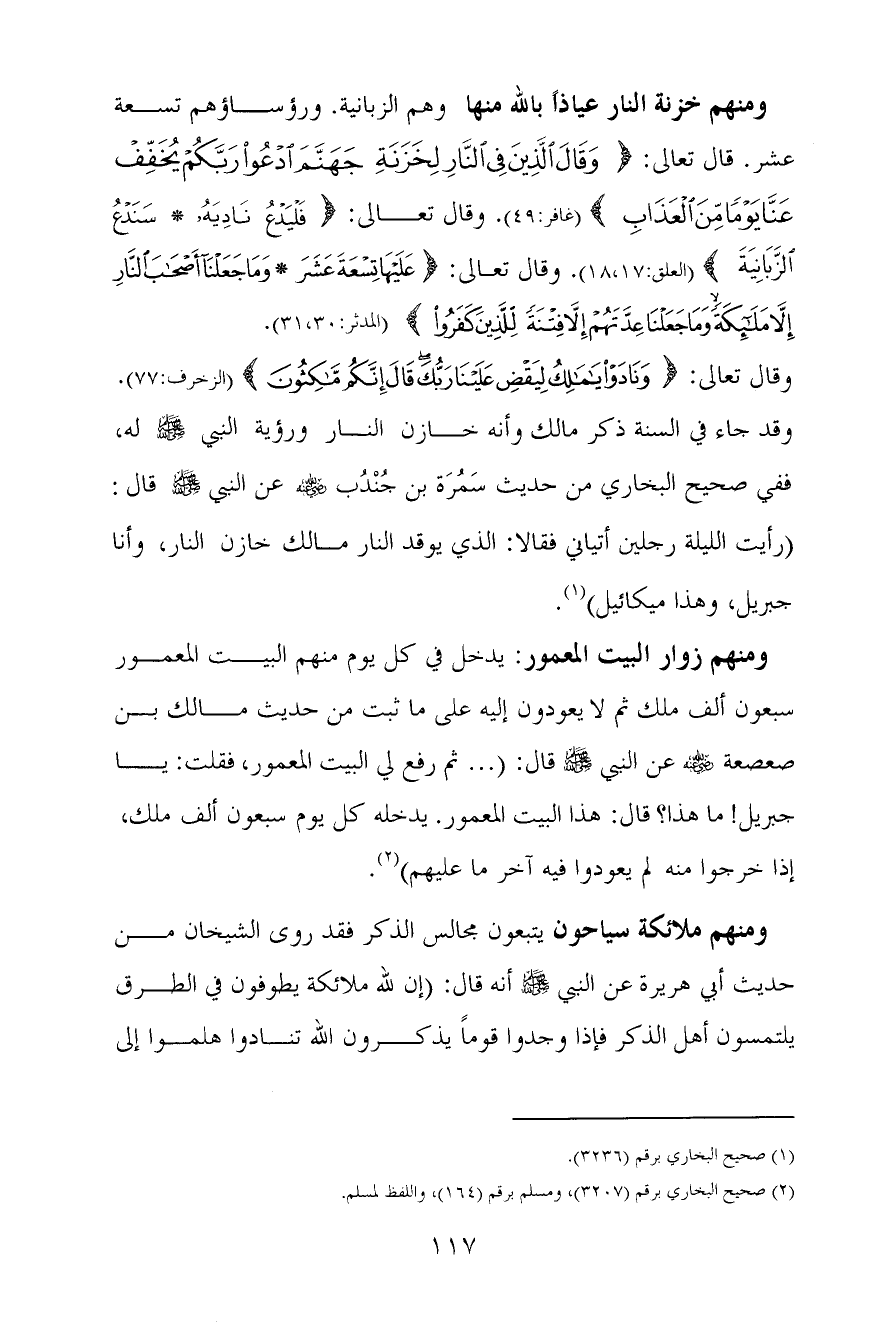 ومنهم خزنة النار عياذاً بالله منها وهم الزبانية. ورؤساؤهم تسعة
عشر. قال تعالى: ﴿ وَقَالَ ٱلَّذِينَ فِي ٱلنَّارِ لِخَزَنَةِ جَهَنَّمَ ٱدْعُواْ رَبَّكُمْ يُخَفِّفْ
عَنَّا يَوْمًا مِّنَ ٱلْعَذَابِ ﴾ (غافر:٤٩). وقال تعالى: ﴿ فَلْيَدْعُ نَادِيَهُۥ * سَنَدْعُ
ٱلزَّبَانِيَةَ ﴾ (العلق:١٨،١٧). وقال تعالى: ﴿ عَلَيْهَا تِسْعَةَ عَشَرَ * وَمَا جَعَلْنَآ أَصْحَٰبَ ٱلنَّارِ
إِلَّا مَلَٰٓئِكَةًۙ وَمَا جَعَلْنَا عِدَّتَهُمْ إِلَّا فِتْنَةً لِّلَّذِينَ كَفَرُواْ ﴾ (المدثر:٣١،٣٠).
وقال تعالى: ﴿ وَنَادَوْاْ يَٰمَٰلِكُ لِيَقْضِ عَلَيْنَا رَبُّكَۖ قَالَ إِنَّكُم مَّٰكِثُونَ ﴾ (الزخرف:٧٧).
وقد جاء في السنة ذكر مالك وأنه خازن النار ورؤية النبي ﷺ له،
ففي صحيح البخاري من حديث سَمُرَة بن جُنْدُب رضي الله عنه عن النبي ﷺ قال:
(رأيت الليلة رجلين أتياني فقالا: الذي يوقد النار مالك خازن النار، وأنا
جبريل، وهذا ميكائيل)(١).
ومنهم زوار البيت المعمور: يدخل في كل يوم منهم البيت المعمور
سبعون ألف ملك ثم لا يعودون إليه على ما ثبت من حديث مالك بن
صعصعة رضي الله عنه عن النبي ﷺ قال: (... ثم رفع لي البيت المعمور، فقلت: يا
جبريل! ما هذا؟ قال: هذا البيت المعمور. يدخله كل يوم سبعون ألف ملك،
إذا خرجوا منه لم يعودوا فيه آخر ما عليهم)(٢).
ومنهم ملائكة سياحون يتبعون مجالس الذكر فقد روى الشيخان من
حديث أبي هريرة عن النبي ﷺ أنه قال: (إن لله ملائكة يطوفون في الطرق
يلتمسون أهل الذكر فإذا وجدوا قوماً يذكرون الله تنادوا هلموا إلى
(١) صحيح البخاري برقم (٣٢٣٦).
(٢) صحيح البخاري برقم (٣٢٠٧)، ومسلم برقم (١٦٤)، واللفظ لمسلم.
١١٧